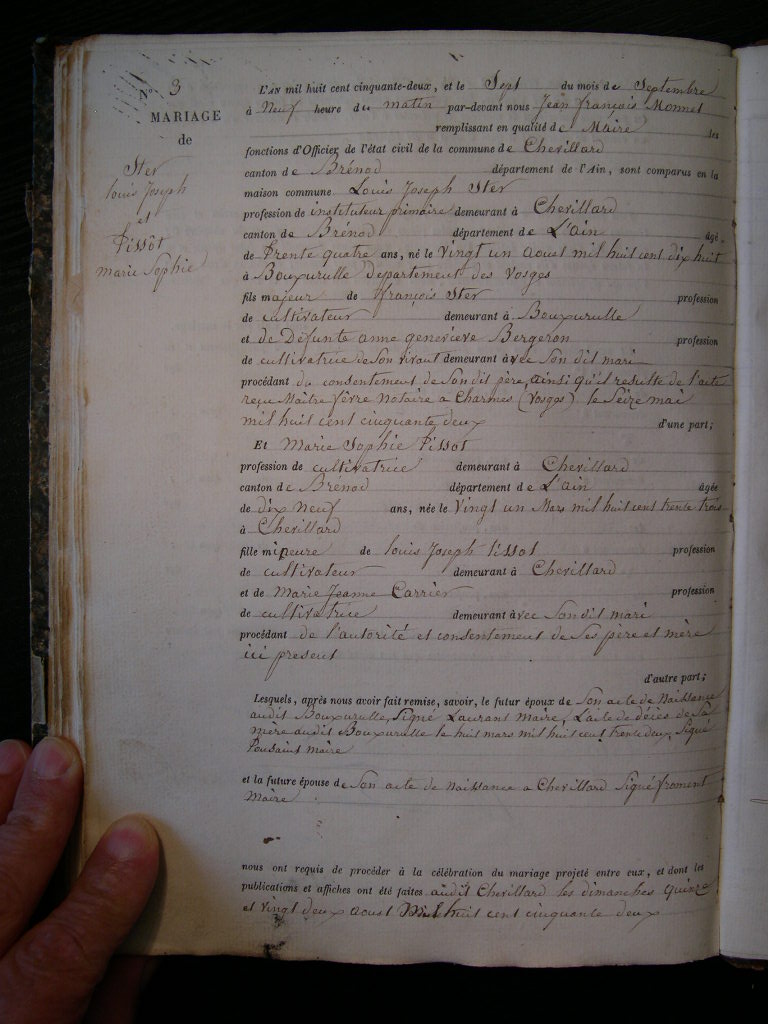 N° 3
MARIAGE
de
Ster
louis Joseph
et
Pissot
marie Sophie
L'AN mil huit cent cinquante-deux, et le Sept du mois de Septembre
à Neuf heure du matin par-devant nous Jean françois Monnet
remplissant en qualité de Maire les
fonctions d'Officier de l'état civil de la commune de Chevillard
canton de Brénod département de l'Ain, sont comparus en la
maison commune Louis Joseph Ster
profession de instituteur primaire demeurant à Chevillard
canton de Brénod département de L'ain âgé
de Trente quatre ans, né le Vingt un aoust mil huit cent dix huit
à Bouxurulle Departement des Vosges
fils majeur de françois Ster profession
de cultivateur demeurant à Bouxurulle
et de Défunte anne geneviève Bergeron profession
de cultivatrice de Son vivant demeurant avec Son dit mari
procédant du consentement de Son dit père, ainsi qu'il resulte de l'acte
reçu Maitre fèvre Notaire a Charmes (Vosges) le Seize mai
mil huit cent cinquante deux d'une part;
Et Marie Sophie Pissot
profession de cultivatrice demeurant à Chevillard
canton de Brénod département de L'ain âgée
de dix Neuf ans, née le Vingt un Mars mil huit cent trente trois
à Chevillard
fille mineure de louis Joseph Pissot profession
de cultivateur demeurant à Chevillard
et de Marie Jeanne Carrier profession
de cultivatrice demeurant avec Son dit mari
procédant de l'autorité et consentement de Ses père et mère
ici present
d'autre part;
Lesquels, après nous avoir fait remise, savoir, le futur époux de Son acte de Naissance
audit Bouxurulle, Signé Laurant Maire, L'acte de décès de Sa
mère audit Bouxurulle le huit mars mil huit cent trente deux, Signé
Maire
et la future épouse de Son acte de Naissance a Chevillard Signé froment
Maire
nous ont requis de procéder à la célébration du mariage projeté entre eux, et dont les
publications et affiches ont été faites audit Chevillard les dimanches quinze
et vingt deux aoust Mil huit cent cinquante deux